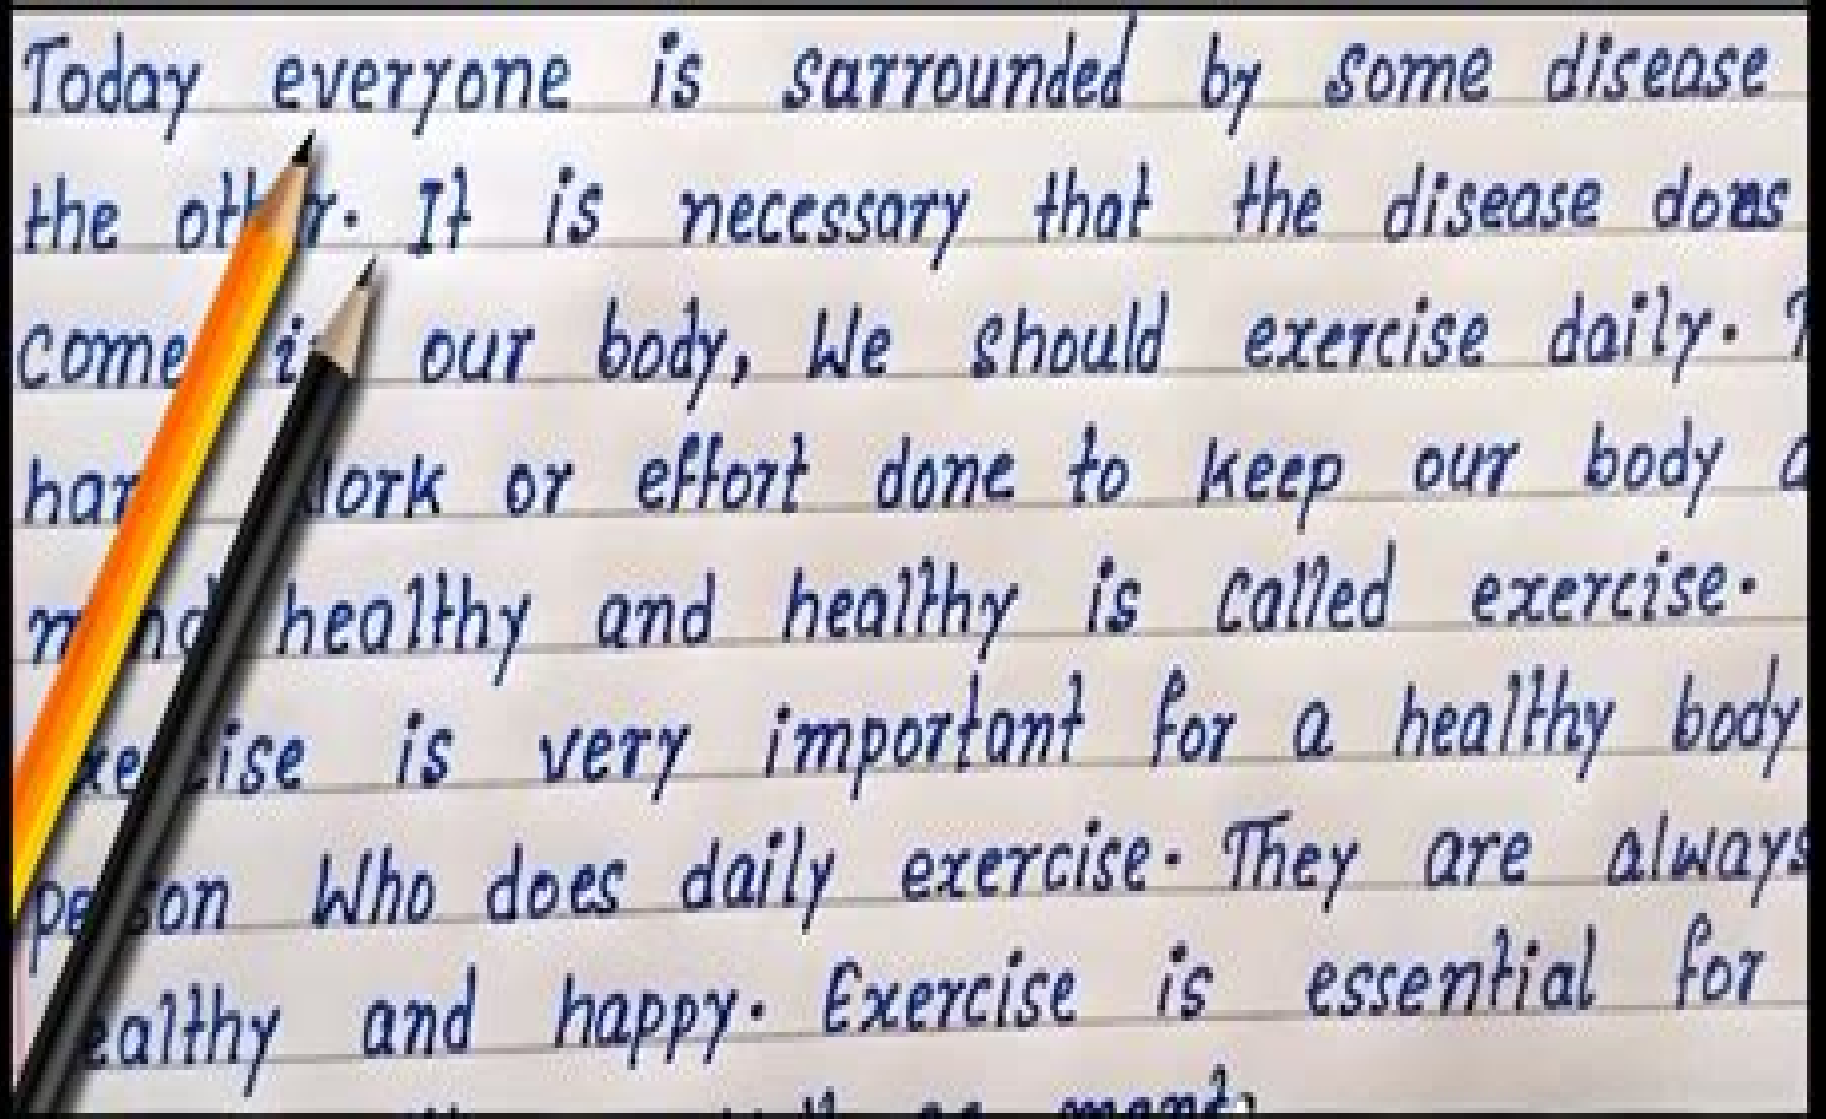 Today everyone is sarrounded by some disease
the other. It is necessary that the disease does
come in our body, We should exercise daily.
hard work or effort done to keep our body
mind healthy and healthy is called exercise.
exercise is very important for a healthy body
person Who does daily exercise. They are always
healthy and happy. Exercise is essential for